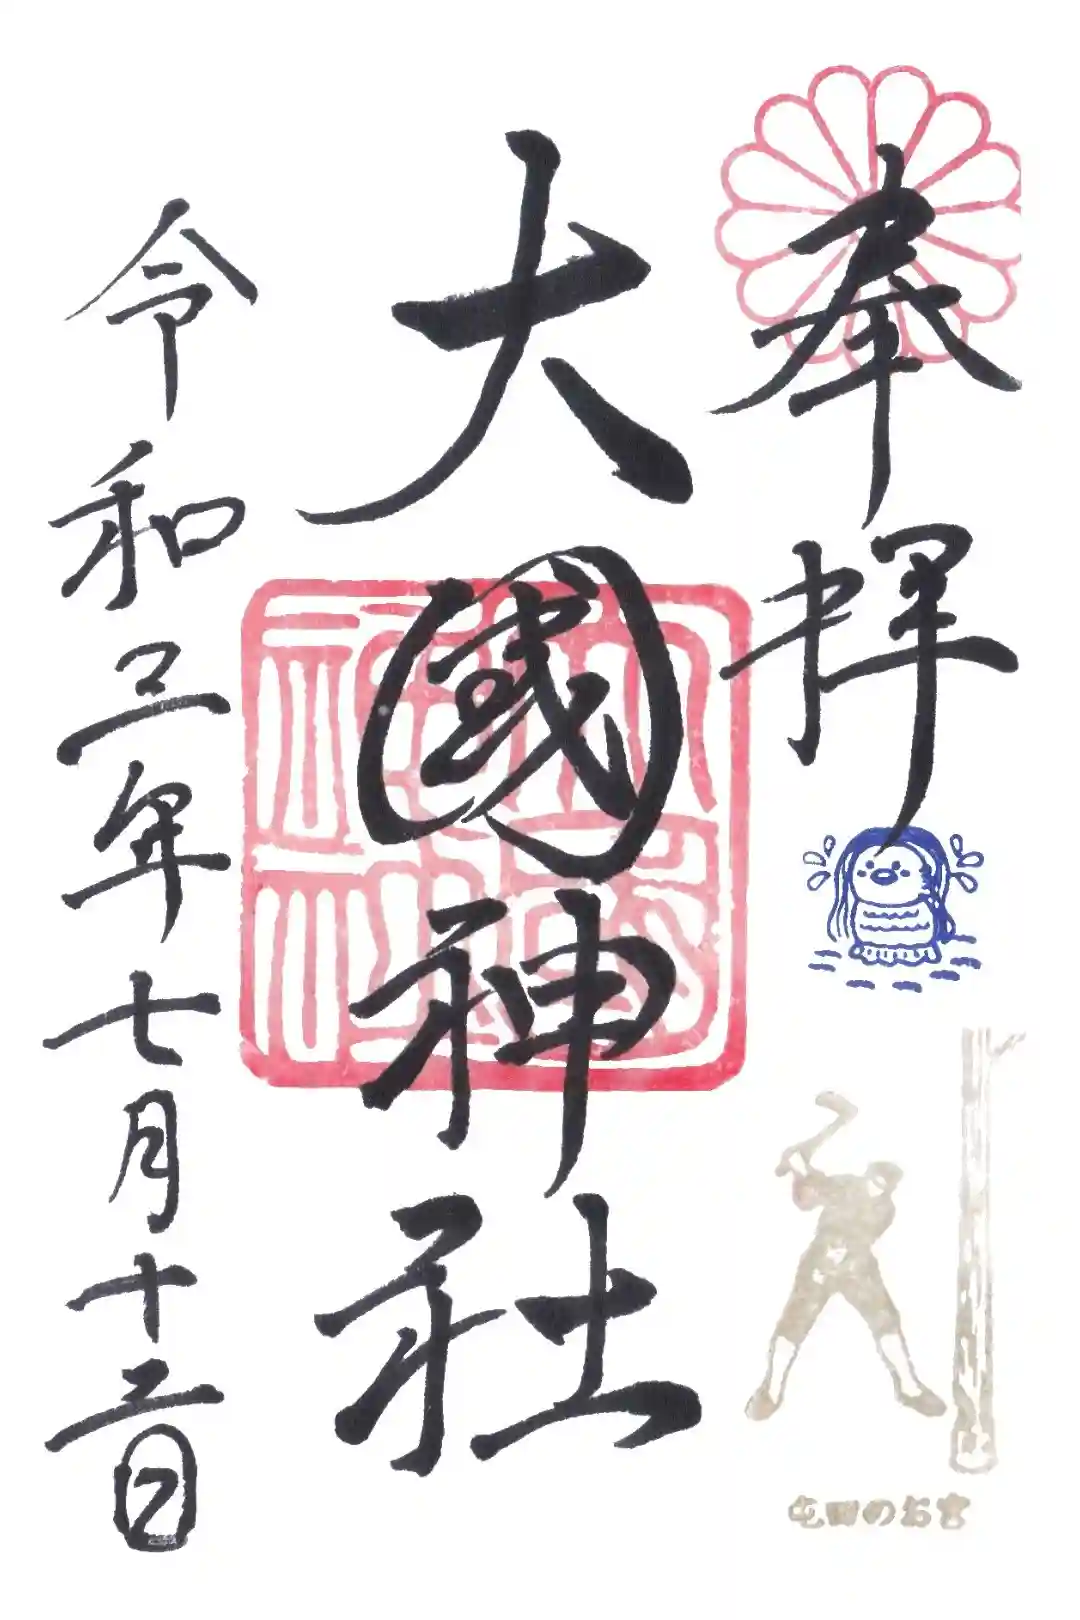 奉拝
大國神社
令和三年七月十三日
屯田のお宮